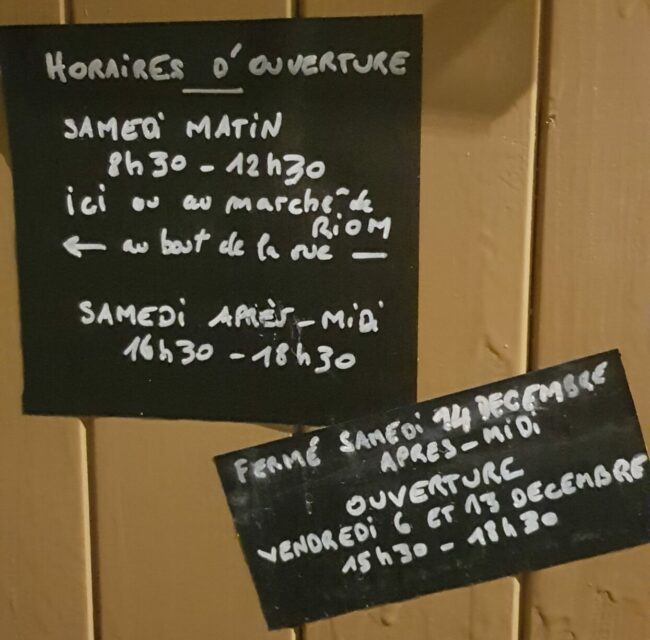 HORAIRES D'OUVERTURE
SAMEDI MATIN
8h30 - 12h30
ici ou au marché de
RIOM
← au bout de la rue —
SAMEDI APRÈS-MIDI
16h30 - 18h30
FERMÉ SAMEDI 14 DECEMBRE
APRES-MIDI
OUVERTURE
VENDREDI 6 ET 13 DECEMBRE
15h30 - 18h30